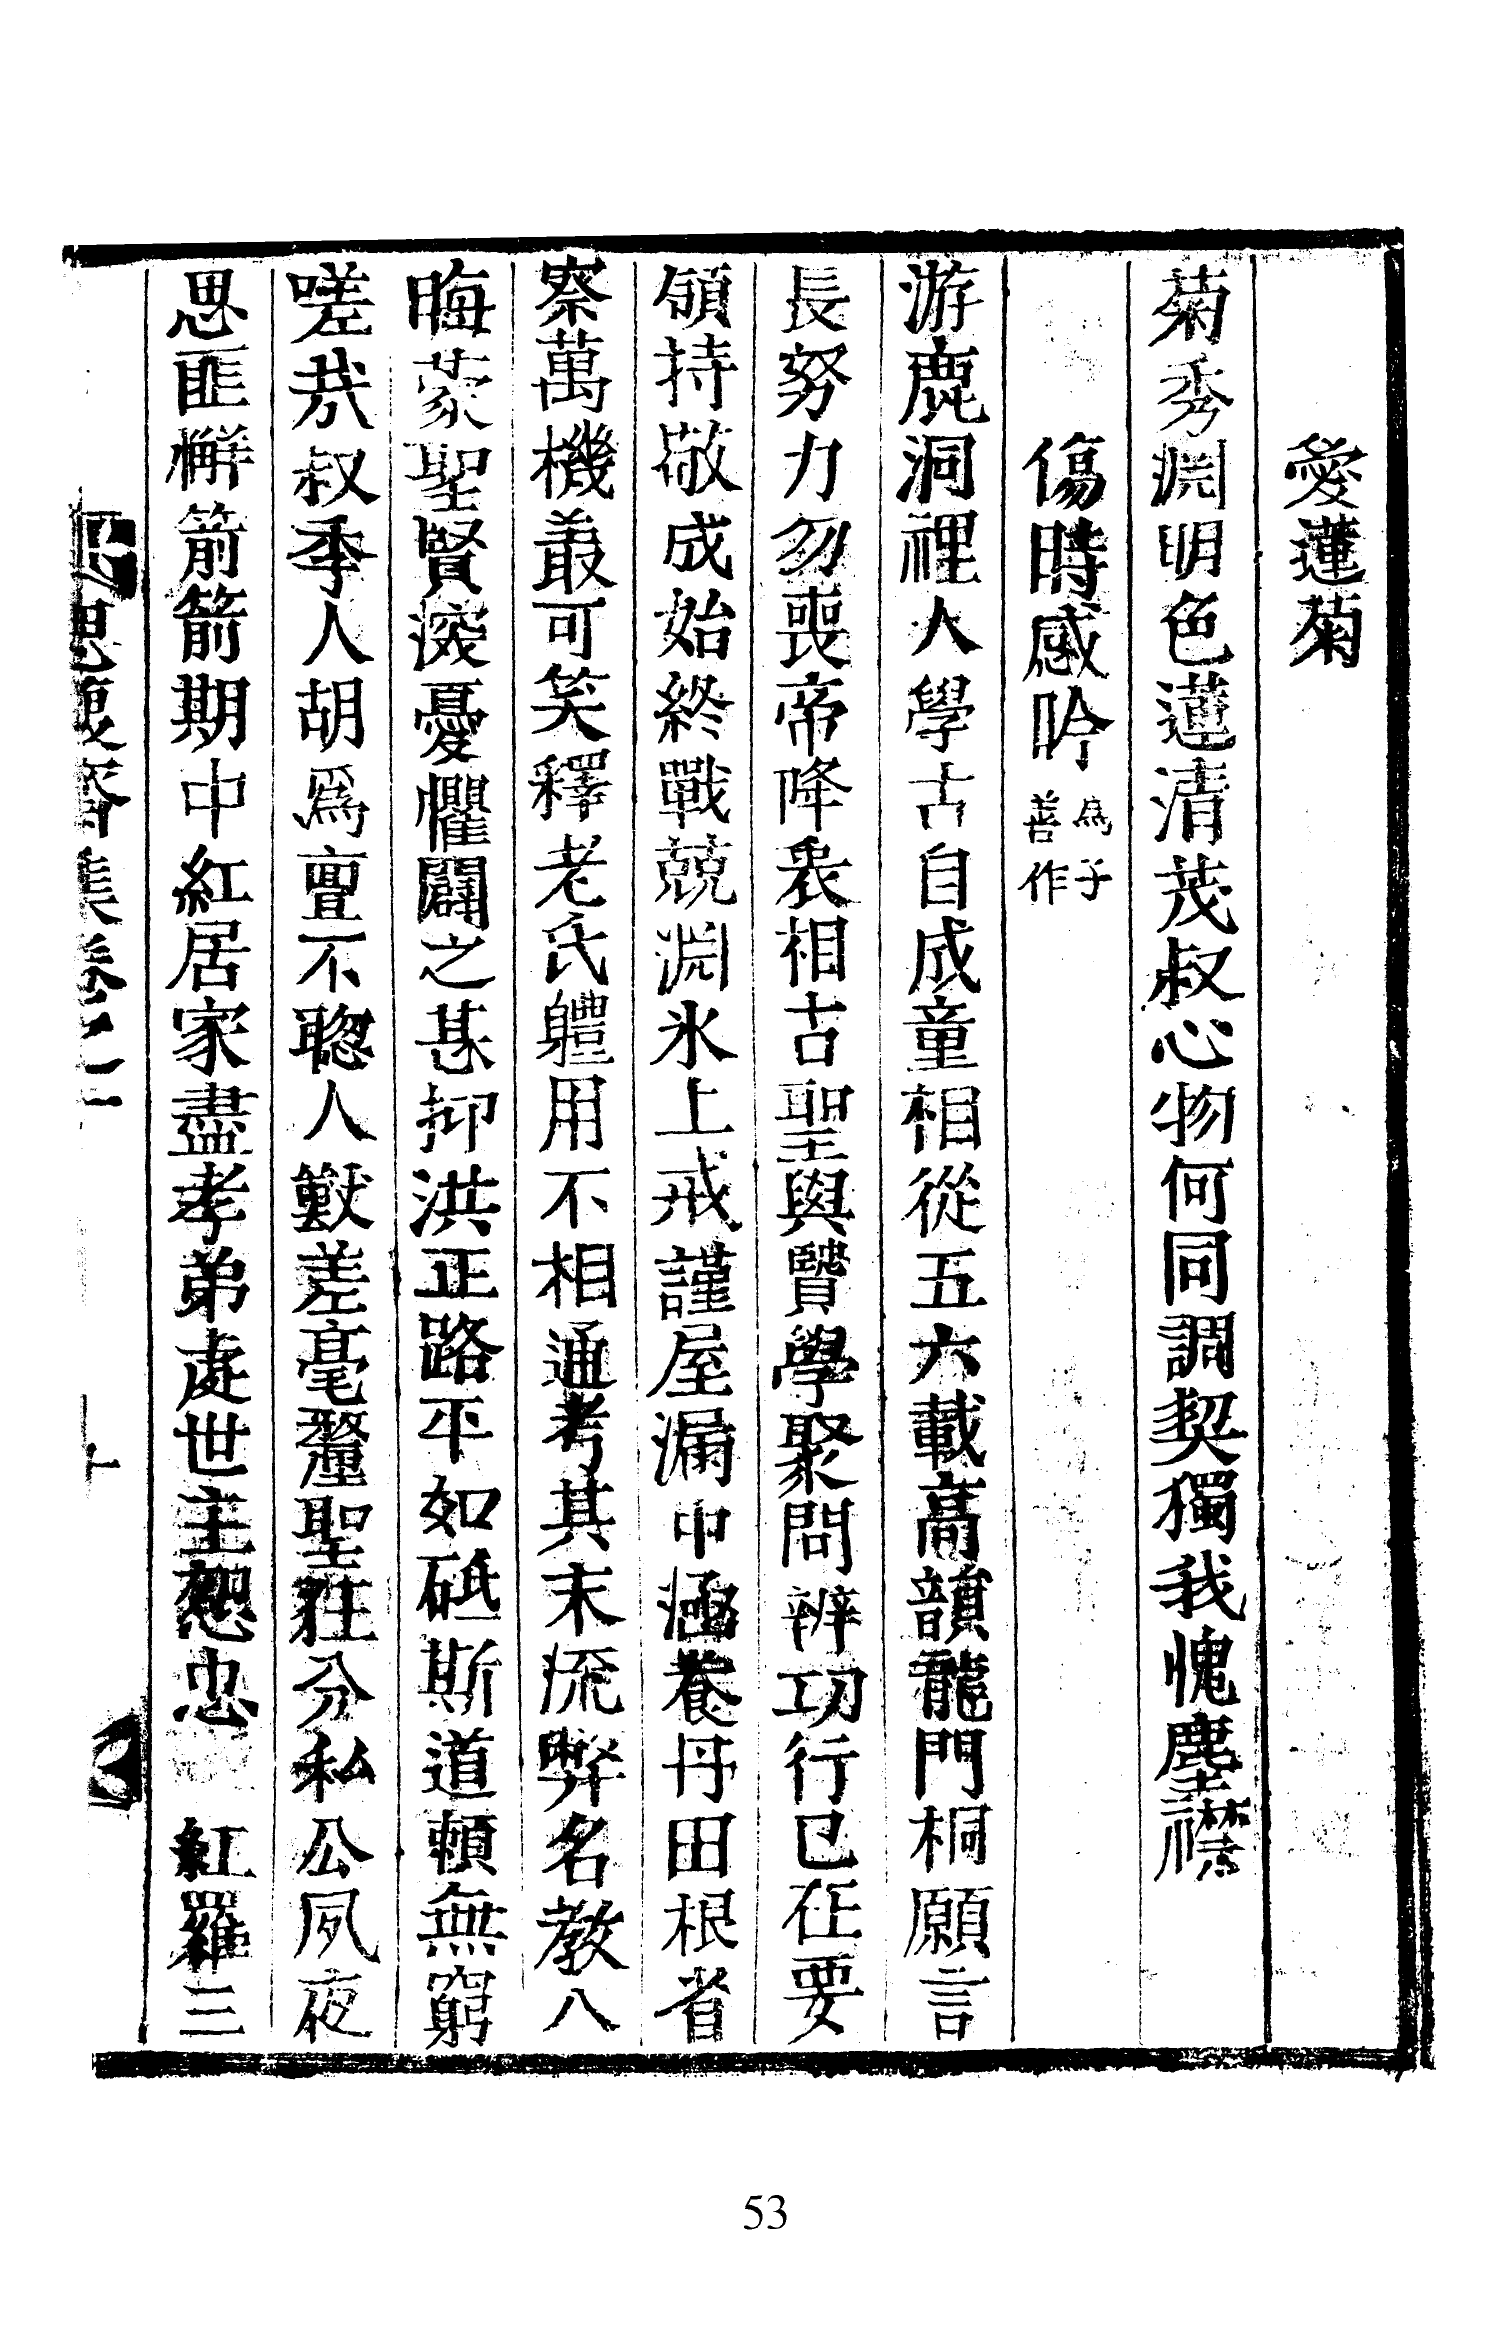 愛蓮菊
菊秀淵明色蓮清茂叔心物何同調契獨我愧塵襟
傷時感吟 爲子善作
游鹿洞裡人學古自成童相從五六載高韻龍門桐願言
長努力勿喪帝降衷相古聖與賢學聚問辨功行已在要
領持敬成始終戰兢淵氷上戒謹屋漏中涵養丹田根省
察萬機叢可笑釋老氏軆用不相通考其末流弊名敎八
晦蒙聖賢深憂懼闢之甚抑洪正路平如砥斯道賴無窮
嗟哉叔季人胡爲亶不聰人獸差毫釐聖狂分私公夙夜
思匪懈箭箭期中紅居家盡孝弟處世主恕忠 紅羅三
思復齋集卷之一
十
53